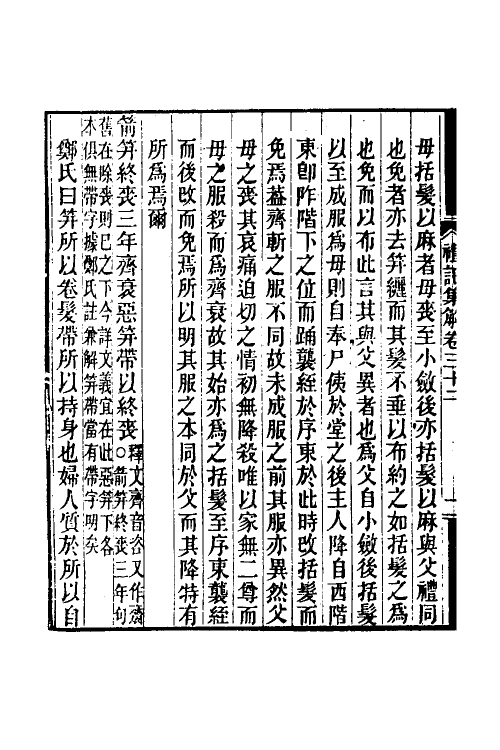 禮記集解卷三十二
母括髮以麻者母喪至小斂後亦括髮以麻與父禮同
也免者亦去笄纚而其髮不垂以布約之如括髮之為
也免而以布此言其與父異者也為父自小斂後括髮
以至成服為母則自奉尸侇於堂之後主人降自西階
東卽阼階下之位而踊襲絰於序東於此時改括髮而
免焉蓋齊斬之服不同故未成服之前其服亦異然父
母之喪其哀痛迫切之情初無降殺唯以家無二尊而
母之服殺而為齊衰故其始亦為之括髮至序東襲絰
而後改而免焉所以明其服之本同於父而其降特有
所為焉爾
箭笄終喪三年齊衰惡笄帶以終喪○釋文齊音咨又作齋
箭笄終喪三年句
舊在除喪則已之下今詳文義宜在此惡笄下各
本俱無帶字據鄭氏註兼解笄帶當有帶字明矣
鄭氏曰笄所以卷髮帶所以持身也婦人質於所以自